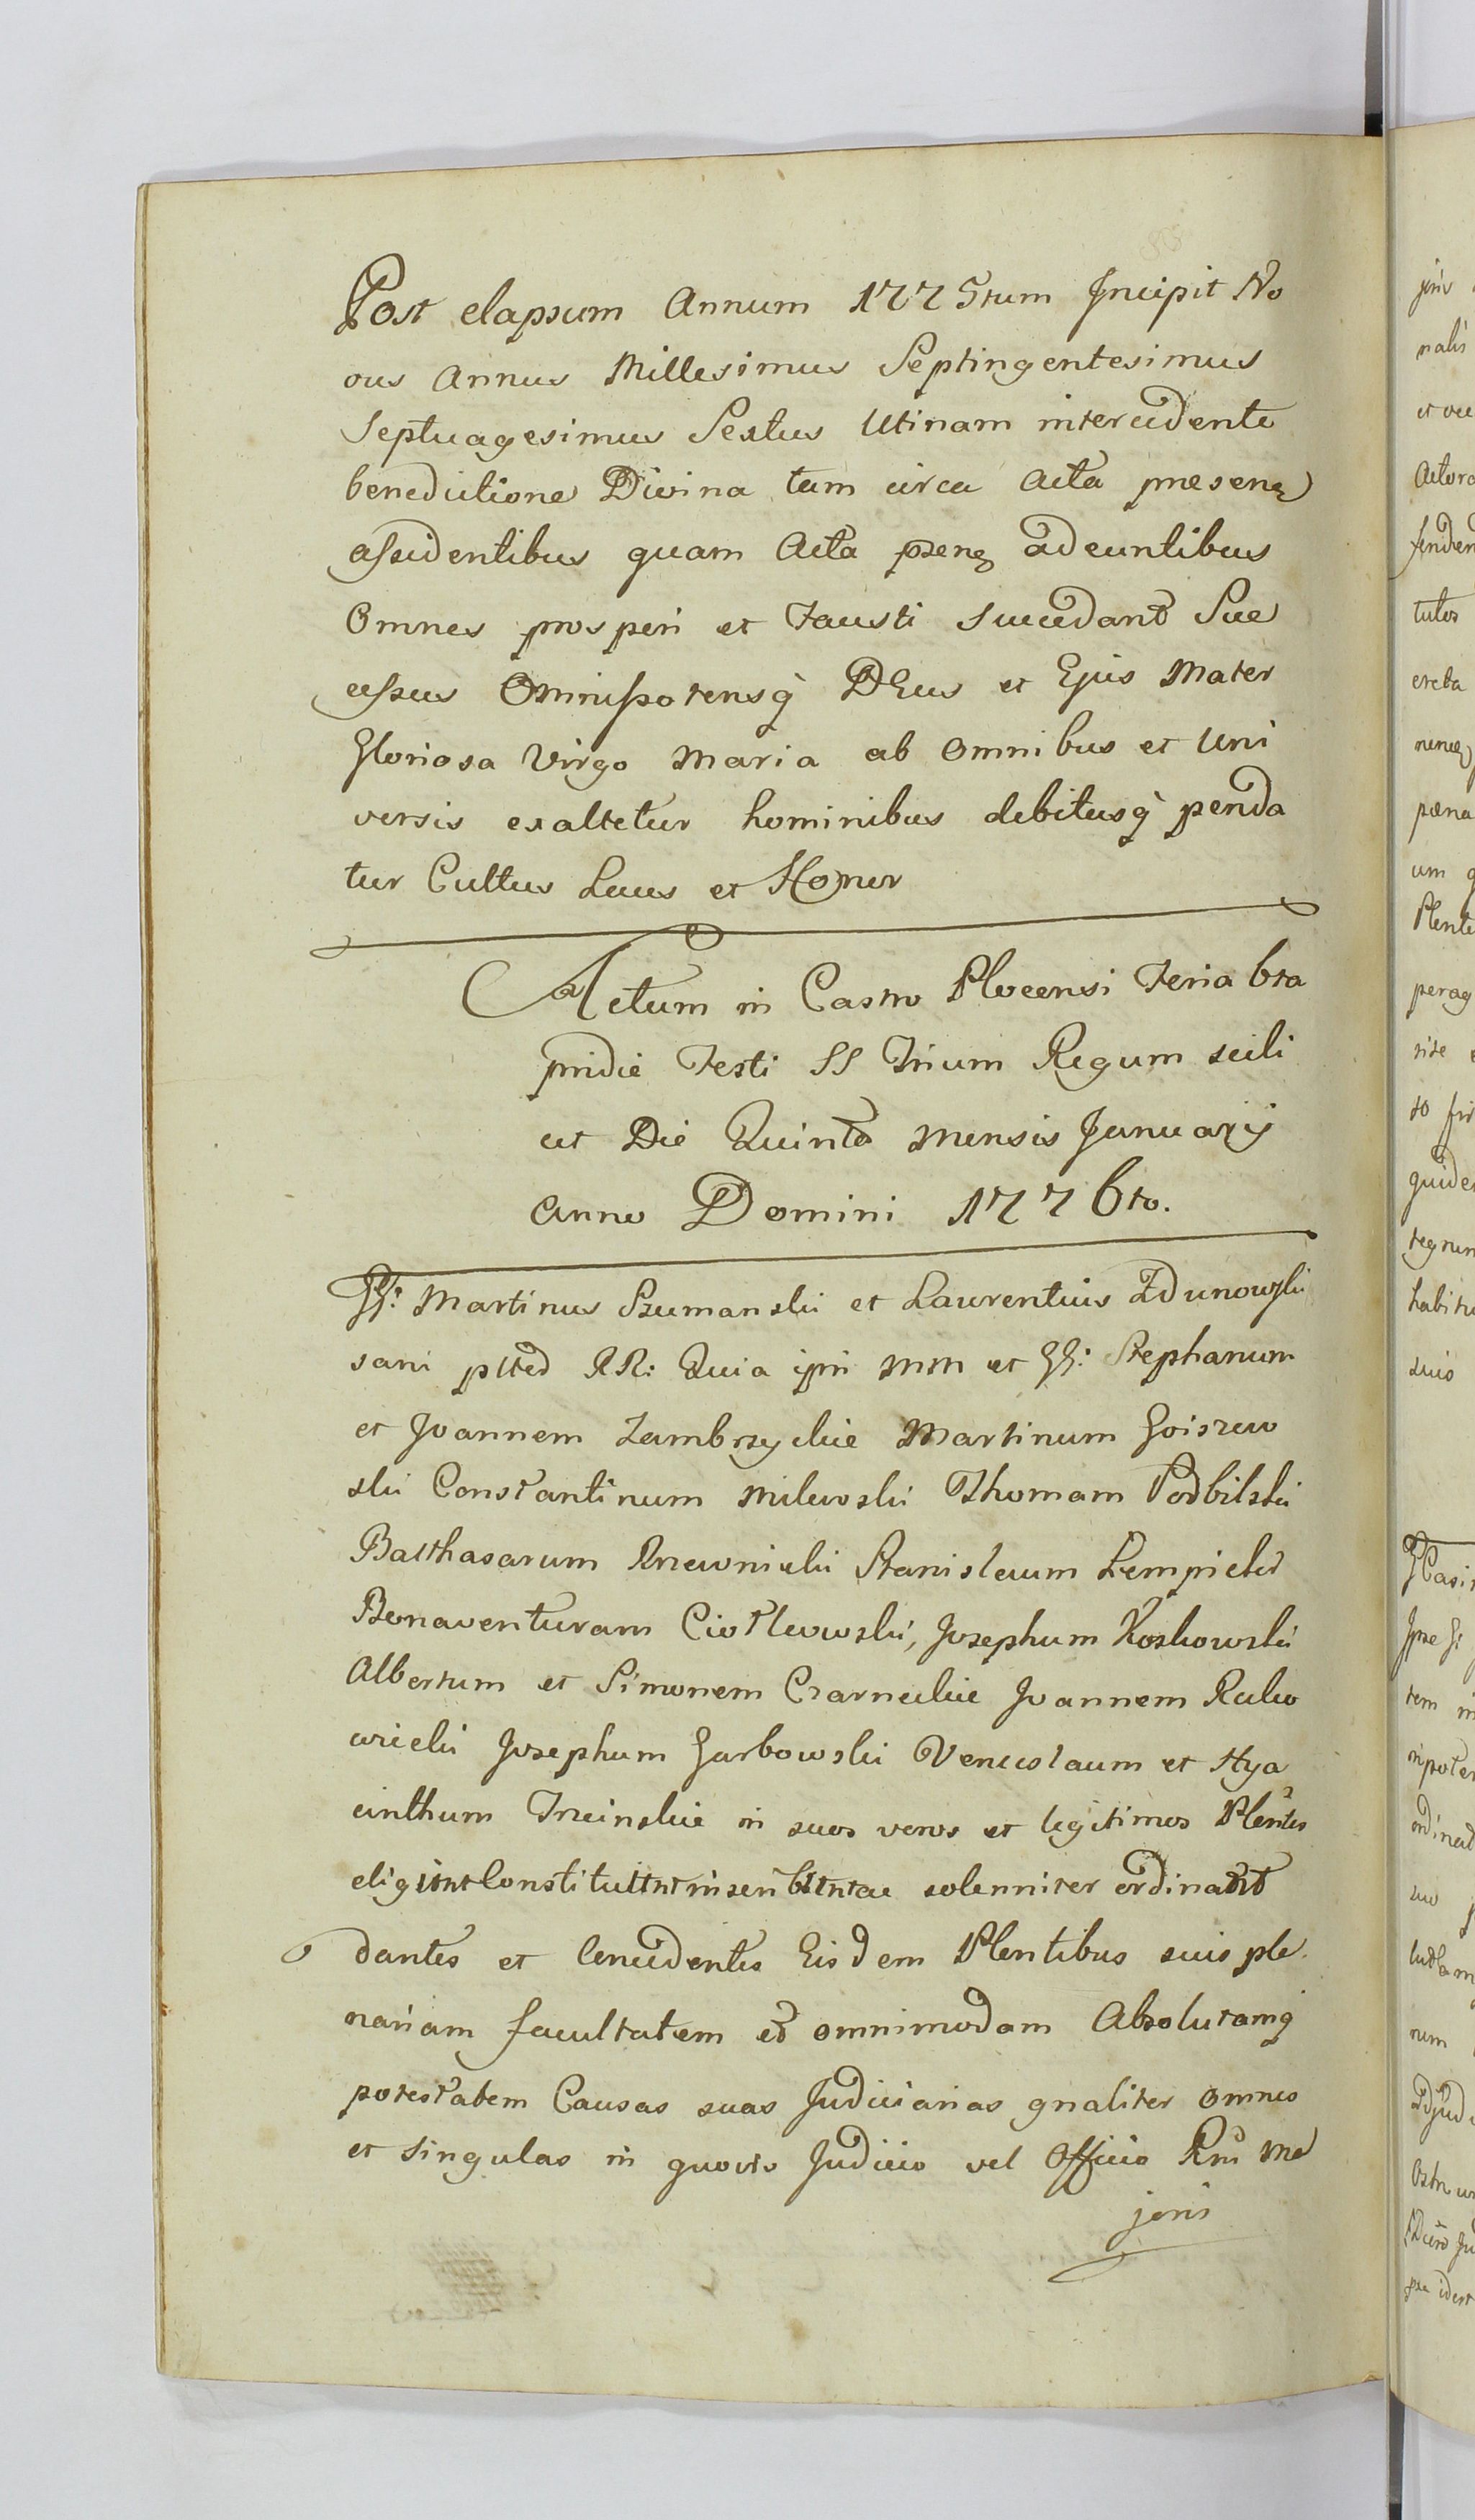 Post elapsum Annum 1775tum Incipit No
vus Annus Millesimus Septingentesimus
Septuagesimus Sextus Utinam intercedente
benedictione Divina tam circa Acta praesenz
assidentibus quam Acta pzenz adeuntibus
Omnes prosperi et Fausti Succedant Suc
cessus Omnipotensq DEus et Ejus Mater
Gloriosa Virgo Maria ab omnibus et Uni
versis exaltetur hominibus debitusq penda
tur Cultus Laus et Honor
Actum in Castro Plocensi Feria 6ta
pridie Festi SS Trium Regum scili
cet Die Quinta mensis Januarij
Anno Domini 1776to.
GG: Martinus Szumanski et Laurentius Zdunowski
sani ptted RR: Quia ipsi MM et GG: Stephanum
et Joannem Zambrzyckie Martinum Goiszew
ski Constantinum Milewski Thomam Podbilski
Balthasarum Krzewnicki Stanislaum Lempicki
Bonaventuram Ciotkowski, Josephum Koskowski
Albertum et Simonem Czarneckie Joannem Rako
wiecki Josephum Garbowski Venceslaum et Hya
cinthum Trzcinskie in suos veros et legitimos Plentes
eligunt Constituunt inscribuntac solenniter ordinant
dantes et Concedentes Eisdem Plentibus suis ple
nariam facultatem et omnimodam Absolutamq
potestatem Causas suas Judiciarias gnaliter omnes
et singulas in quovis Judicio vel Officio Rni Me
joris